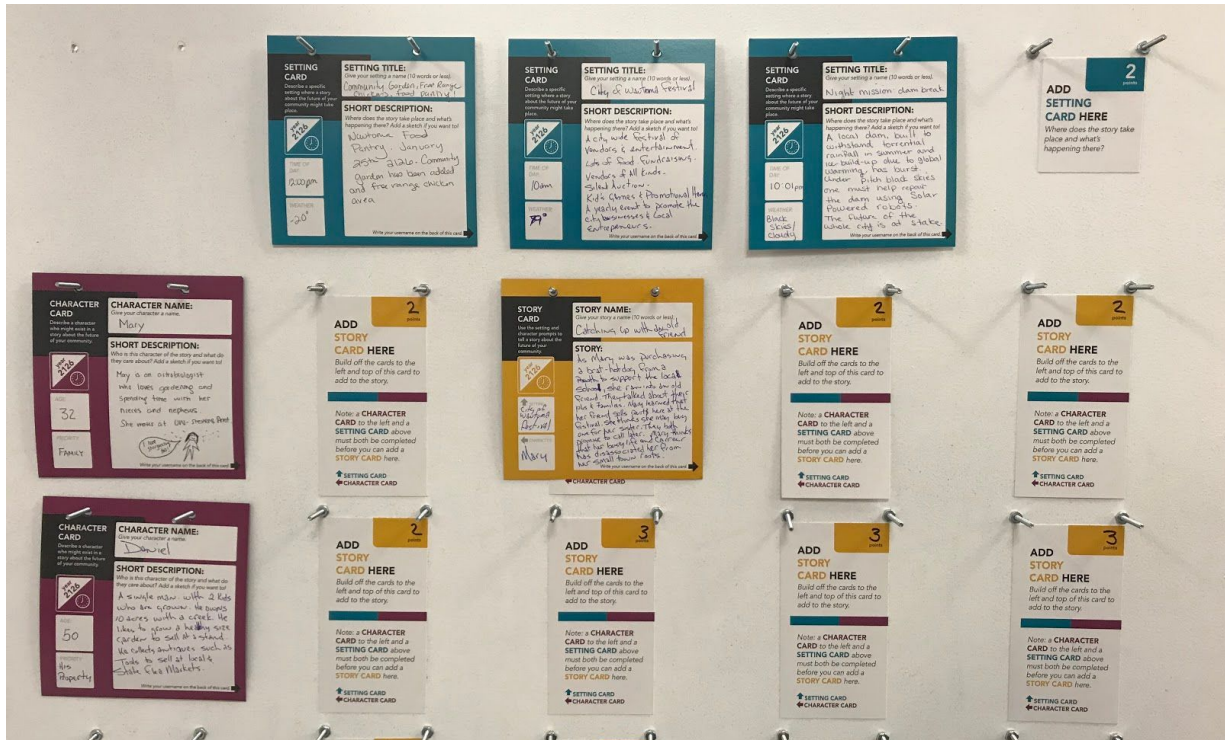 SETTING
CARD
Describe a specific
setting where a story
about the future of
your community might
take place.
year
2126
TIME OF
DAY
12:00pm
WEATHER
-20°
SETTING TITLE:
Give your setting a name (10 words or less)
Community Garden, Free Range
Chickens, Food pantry!
SHORT DESCRIPTION:
Where does the story take place and what's
happening there? Add a sketch if you want to!
Food
Pantry. January
25th 2126. Community
garden has been added
and free range chicken
area
Write your username on the back of this card
SETTING
CARD
Describe a specific
setting where a story
about the future of
your community might
take place.
year
2126
TIME OF
DAY
10am
WEATHER
79°
SETTING TITLE:
Give your setting a name (10 words or less)
City of Festival
SHORT DESCRIPTION:
Where does the story take place and what's
happening there? Add a sketch if you want to!
A city wide festival of
vendors & entertainment.
Lots of Food Fundraising.
Vendors of All Kinds.
Silent Auction.
Kid's Games & Promotional
A yearly event to promote the
city businesses & local
Entrepeneurs.
Write your username on the back of this card
SETTING
CARD
Describe a specific
setting where a story
about the future of
your community might
take place.
year
2126
TIME OF
DAY
10:01pm
WEATHER
Black
skies/
Cloudy
SETTING TITLE:
Give your setting a name (10 words or less)
Night mission: dam break
SHORT DESCRIPTION:
Where does the story take place and what's
happening there? Add a sketch if you want to!
A local dam, built to
withstand torrential
rainfall in summer and
ice build-up due to global
warming, has burst.
Under pitch black skies
one must help repair
the dam using Solar
Powered robots.
The future of the
whole city is at stake.
Write your username on the back of this card
2
points
ADD
SETTING
CARD HERE
Where does the story take
place and what's
happening there?
CHARACTER
CARD
Describe a character
who might exist in a
story about the future
of your community.
year
2126
AGE
32
PRIORITY
FAMILY
CHARACTER NAME:
Give your character a name.
Mary
SHORT DESCRIPTION:
Who is this character of the story and what do
they care about? Add a sketch if you want to!
May is an astrobiologist
who loves gardening and
spending time with her
nieces and nephews.
She works at UW-Stevens Point
Write your username on the back of this card
2
points
ADD
STORY
CARD HERE
Build off the cards to the
left and top of this card to
add to the story.
Note: a CHARACTER
CARD to the left and a
SETTING CARD above
must both be completed
before you can add a
STORY CARD here.
SETTING CARD
CHARACTER CARD
STORY
CARD
Use the setting and
character prompts to
tell a story about the
future of your
community.
year
2126
SETTING
City of
Festival
CHARACTER
Mary
STORY NAME:
Give your story a name (10 words or less)
Catching up with an old
friend
STORY:
As Mary was purchasing
a brat-hotdog from a
booth to support the local
school, she ran into an old
friend. They talked about their
jobs & families. Mary learned that
her friend sells here at the
festival. She thinks she may buy
one for her sister. They both
promise to call later. Mary thinks
that her busy life and career
has disassociated her from
her small town roots.
Write your username on the back of this card
CHARACTER CARD
2
points
ADD
STORY
CARD HERE
Build off the cards to the
left and top of this card to
add to the story.
Note: a CHARACTER
CARD to the left and a
SETTING CARD above
must both be completed
before you can add a
STORY CARD here.
SETTING CARD
CHARACTER CARD
2
points
ADD
STORY
CARD HERE
Build off the cards to the
left and top of this card to
add to the story.
Note: a CHARACTER
CARD to the left and a
SETTING CARD above
must both be completed
before you can add a
STORY CARD here.
SETTING CARD
CHARACTER CARD
CHARACTER
CARD
Describe a character
who might exist in a
story about the future
of your community.
year
2126
AGE
50
PRIORITY
His
Property
CHARACTER NAME:
Give your character a name.
Daniel
SHORT DESCRIPTION:
Who is this character of the story and what do
they care about? Add a sketch if you want to!
A single man with 2 kids
who are grown. He owns
10 acres with a creek. He
likes to grow a healthy size
garden to sell at a stand.
He collects antiques such as
Tools to sell at local &
State Flea Markets.
Write your username on the back of this card
2
points
ADD
STORY
CARD HERE
Build off the cards to the
left and top of this card to
add to the story.
Note: a CHARACTER
CARD to the left and a
SETTING CARD above
must both be completed
before you can add a
STORY CARD here.
SETTING CARD
CHARACTER CARD
3
points
ADD
STORY
CARD HERE
Build off the cards to the
left and top of this card to
add to the story.
Note: a CHARACTER
CARD to the left and a
SETTING CARD above
must both be completed
before you can add a
STORY CARD here.
SETTING CARD
CHARACTER CARD
3
points
ADD
STORY
CARD HERE
Build off the cards to the
left and top of this card to
add to the story.
Note: a CHARACTER
CARD to the left and a
SETTING CARD above
must both be completed
before you can add a
STORY CARD here.
SETTING CARD
CHARACTER CARD
3
points
ADD
STORY
CARD HERE
Build off the cards to the
left and top of this card to
add to the story.
Note: a CHARACTER
CARD to the left and a
SETTING CARD above
must both be completed
before you can add a
STORY CARD here.
SETTING CARD
CHARACTER CARD